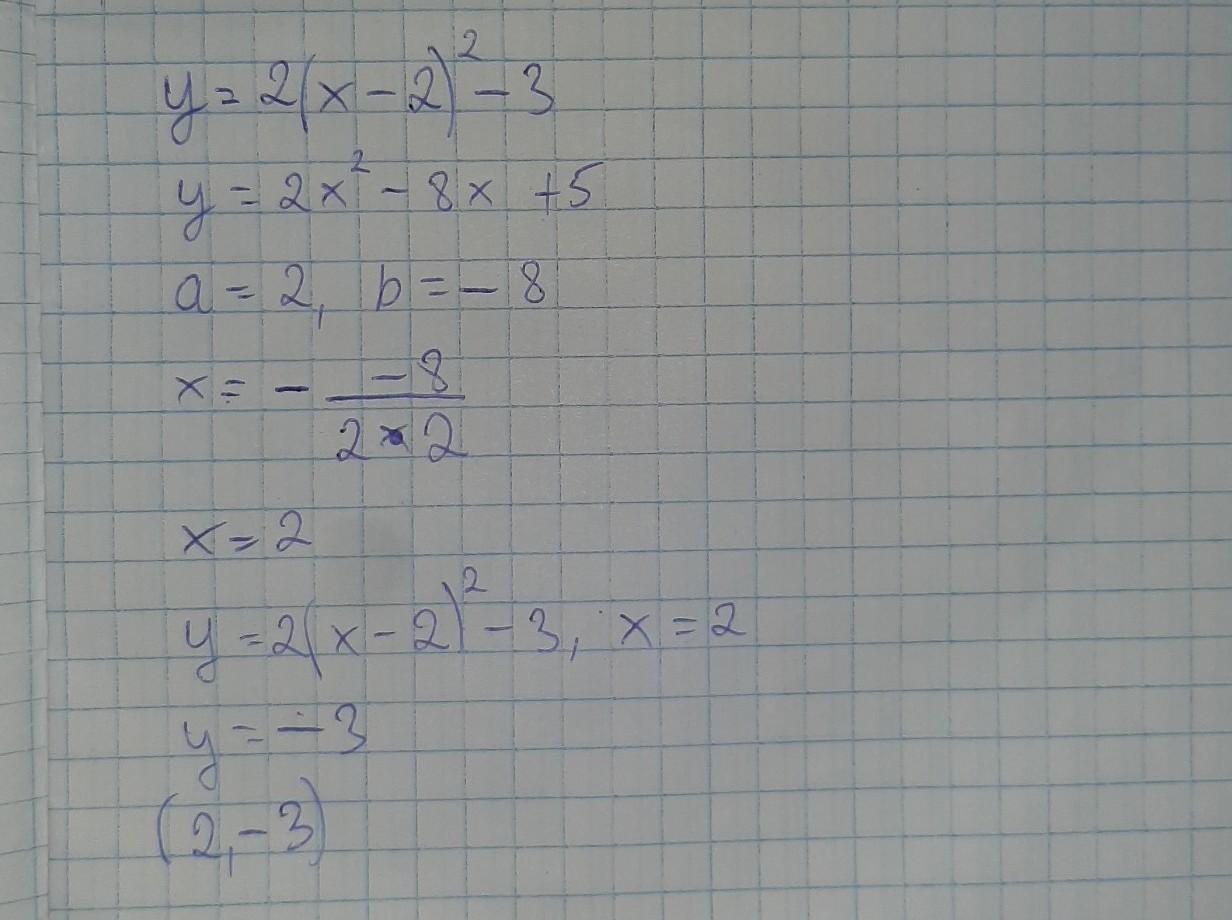 y = 2(x - 2)² - 3
y = 2x² - 8x + 5
a = 2, b = - 8
x = - \frac{-8}{2 × 2}
x = 2
y = 2(x - 2)² - 3, x = 2
y = - 3
(2, - 3)